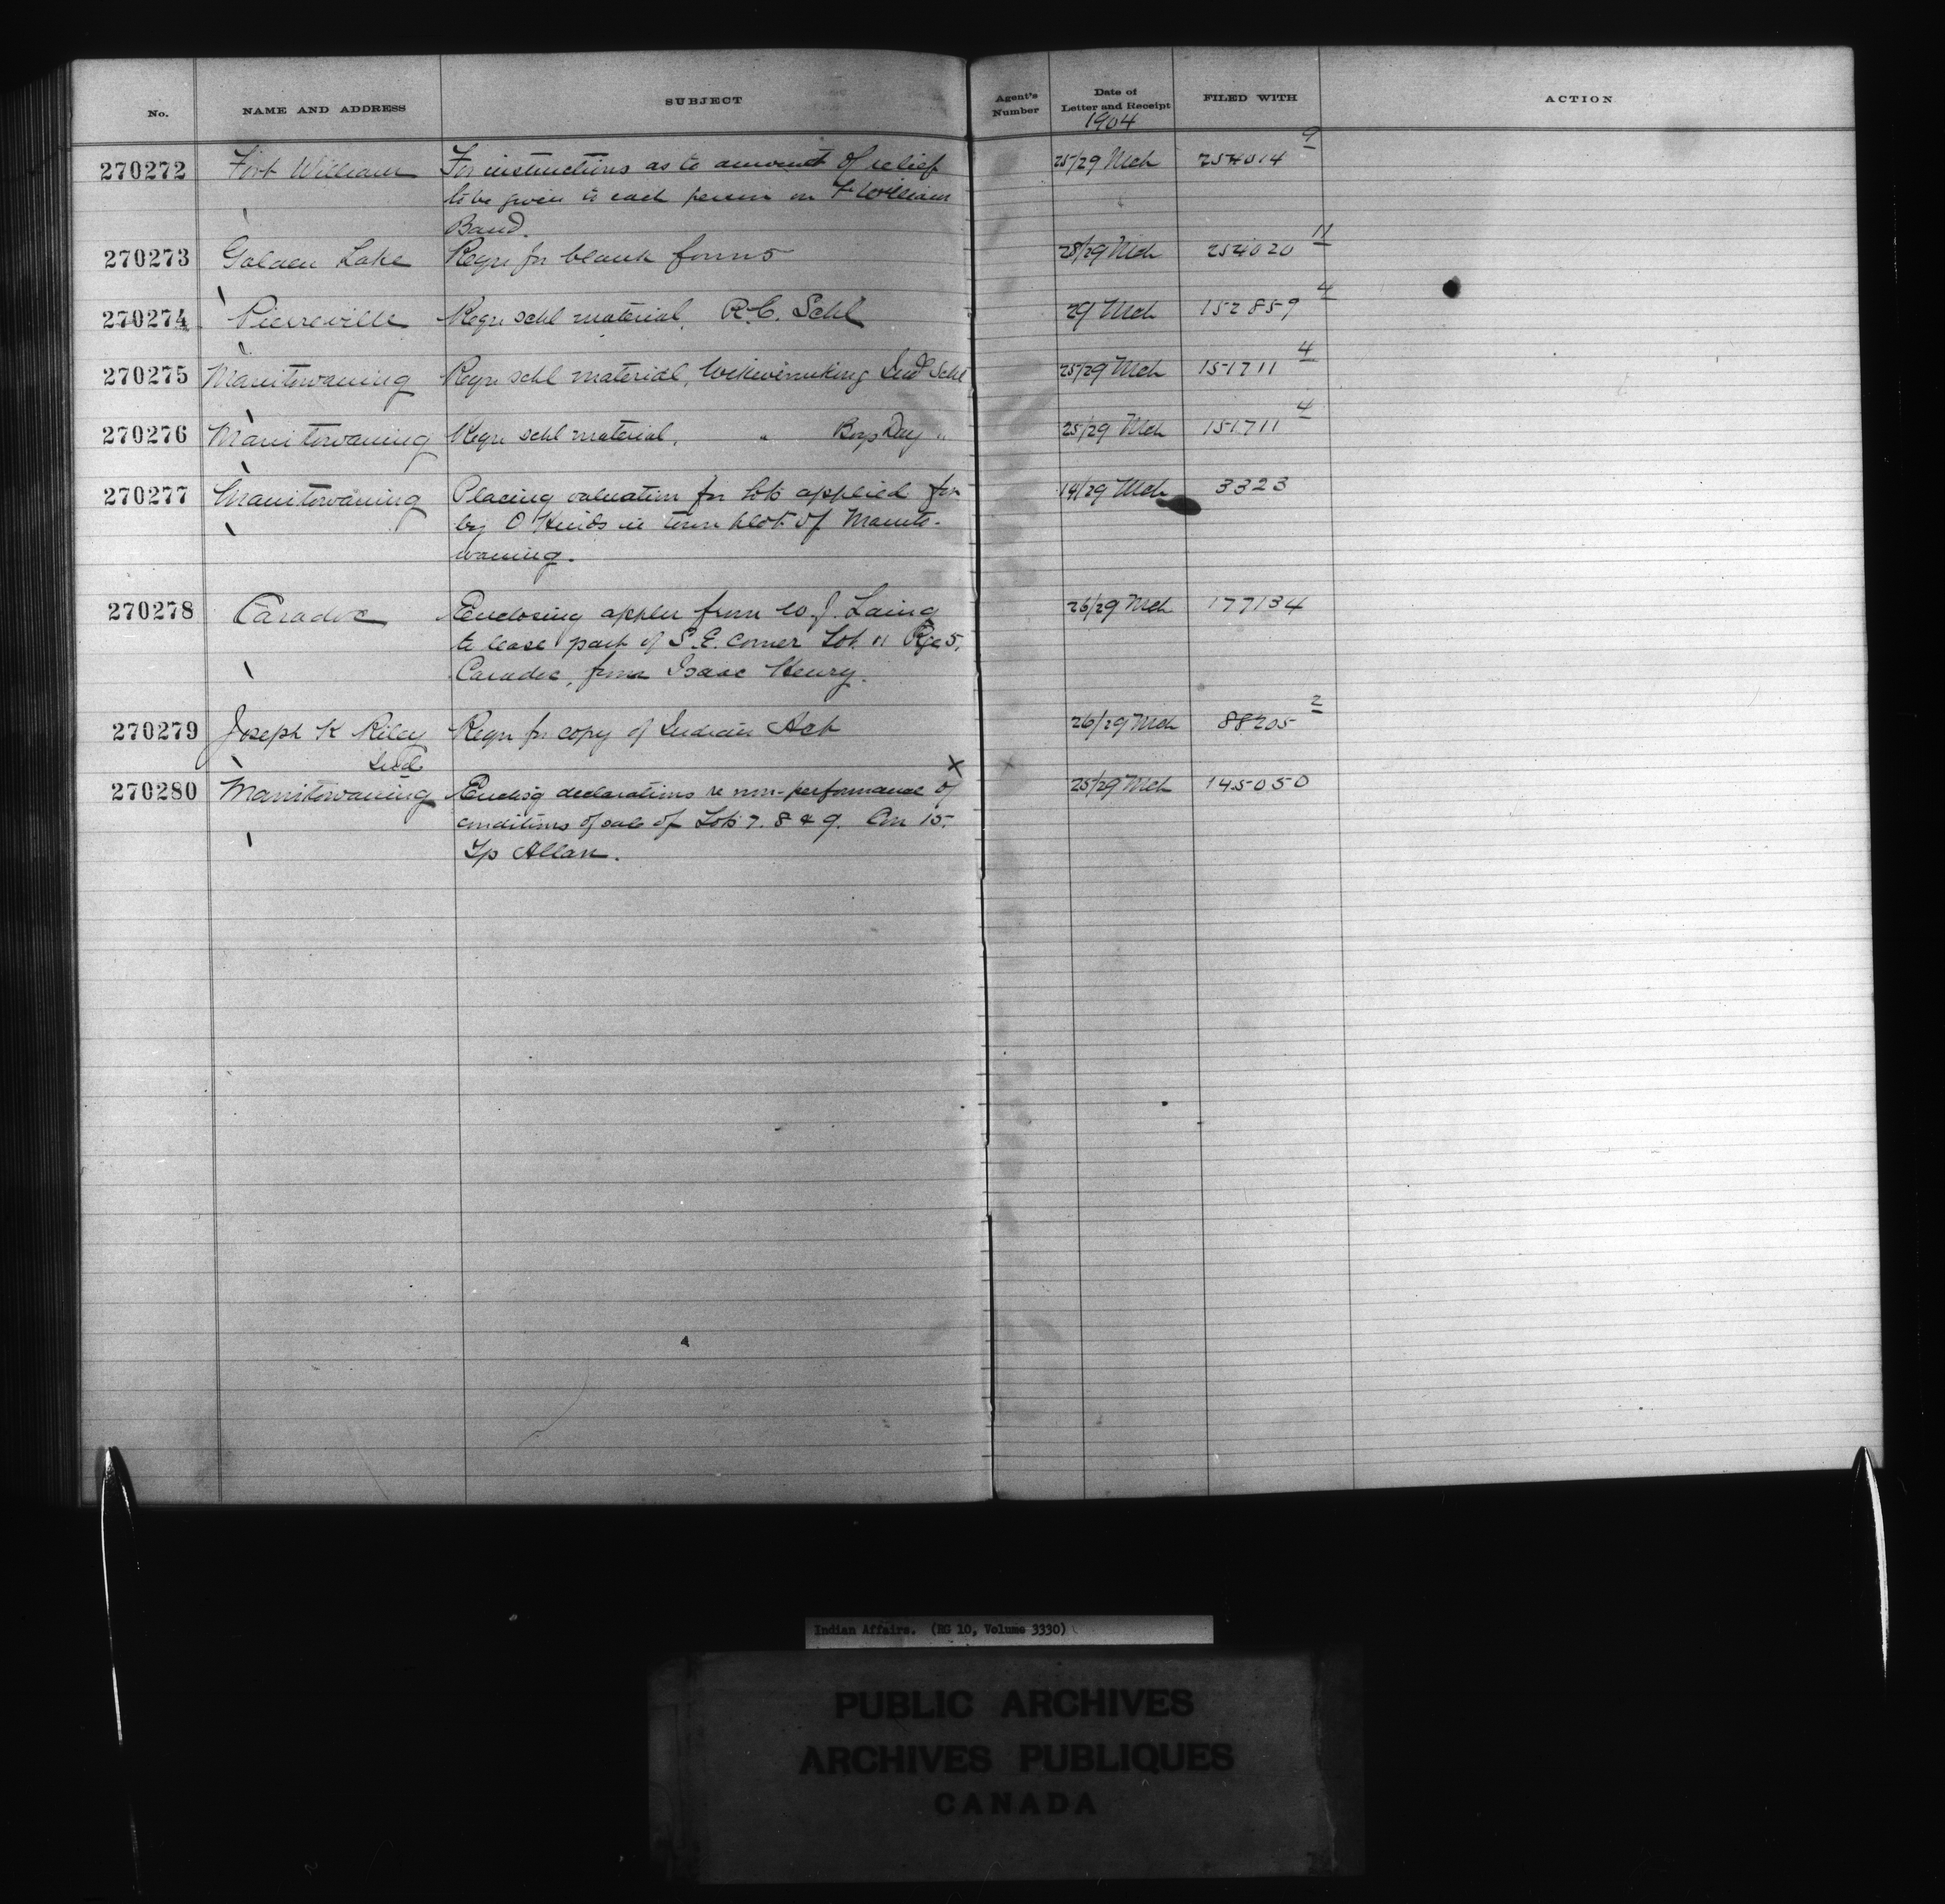 No. NAME AND ADDRESS SUBJECT Agent's Number Date of Letter and Receipt FILED WITH ACTION
1904
270272 Fort William For instructions as to amount of relief 25/29 Mch 254014 9
to be given to each person on Ft William
Band.
270273 Golden Lake Reqn for blank forms 28/29 Mch 254020 11
270274 Pierreville Reqn schl material, R.C. Schl 29 Mch 152859 4
270275 Manitowaning Reqn schl material, Wikwemikong Indl Schl 25/29 Mch 151711 4
270276 Manitowaning Reqn schl material, " Boys Day " 25/29 Mch 151711 4
270277 Manitowaning Placing valuation for lots applied for 14/29 Mch 3323
by O Hinds in town plot of Manito-
waning.
270278 Caradoc Enclosing appln from W. J. Laing 26/29 Mch 177134
to lease part of S.E. corner Lot 11 Rge 5,
Caradoc, from Isaac Henry.
270279 Joseph K Riley Reqn for copy of Indian Act 26/29 Mch 88205 2
Ind
x
270280 Manitowaning Enclosg declarations re non-performance of 25/29 Mch 145050
conditions of sale of Lots 7. 8 & 9. Con 15.
Tp Allan.
Indian Affairs. (RG 10, Volume 3330)
PUBLIC ARCHIVES
ARCHIVES PUBLIQUES
CANADA